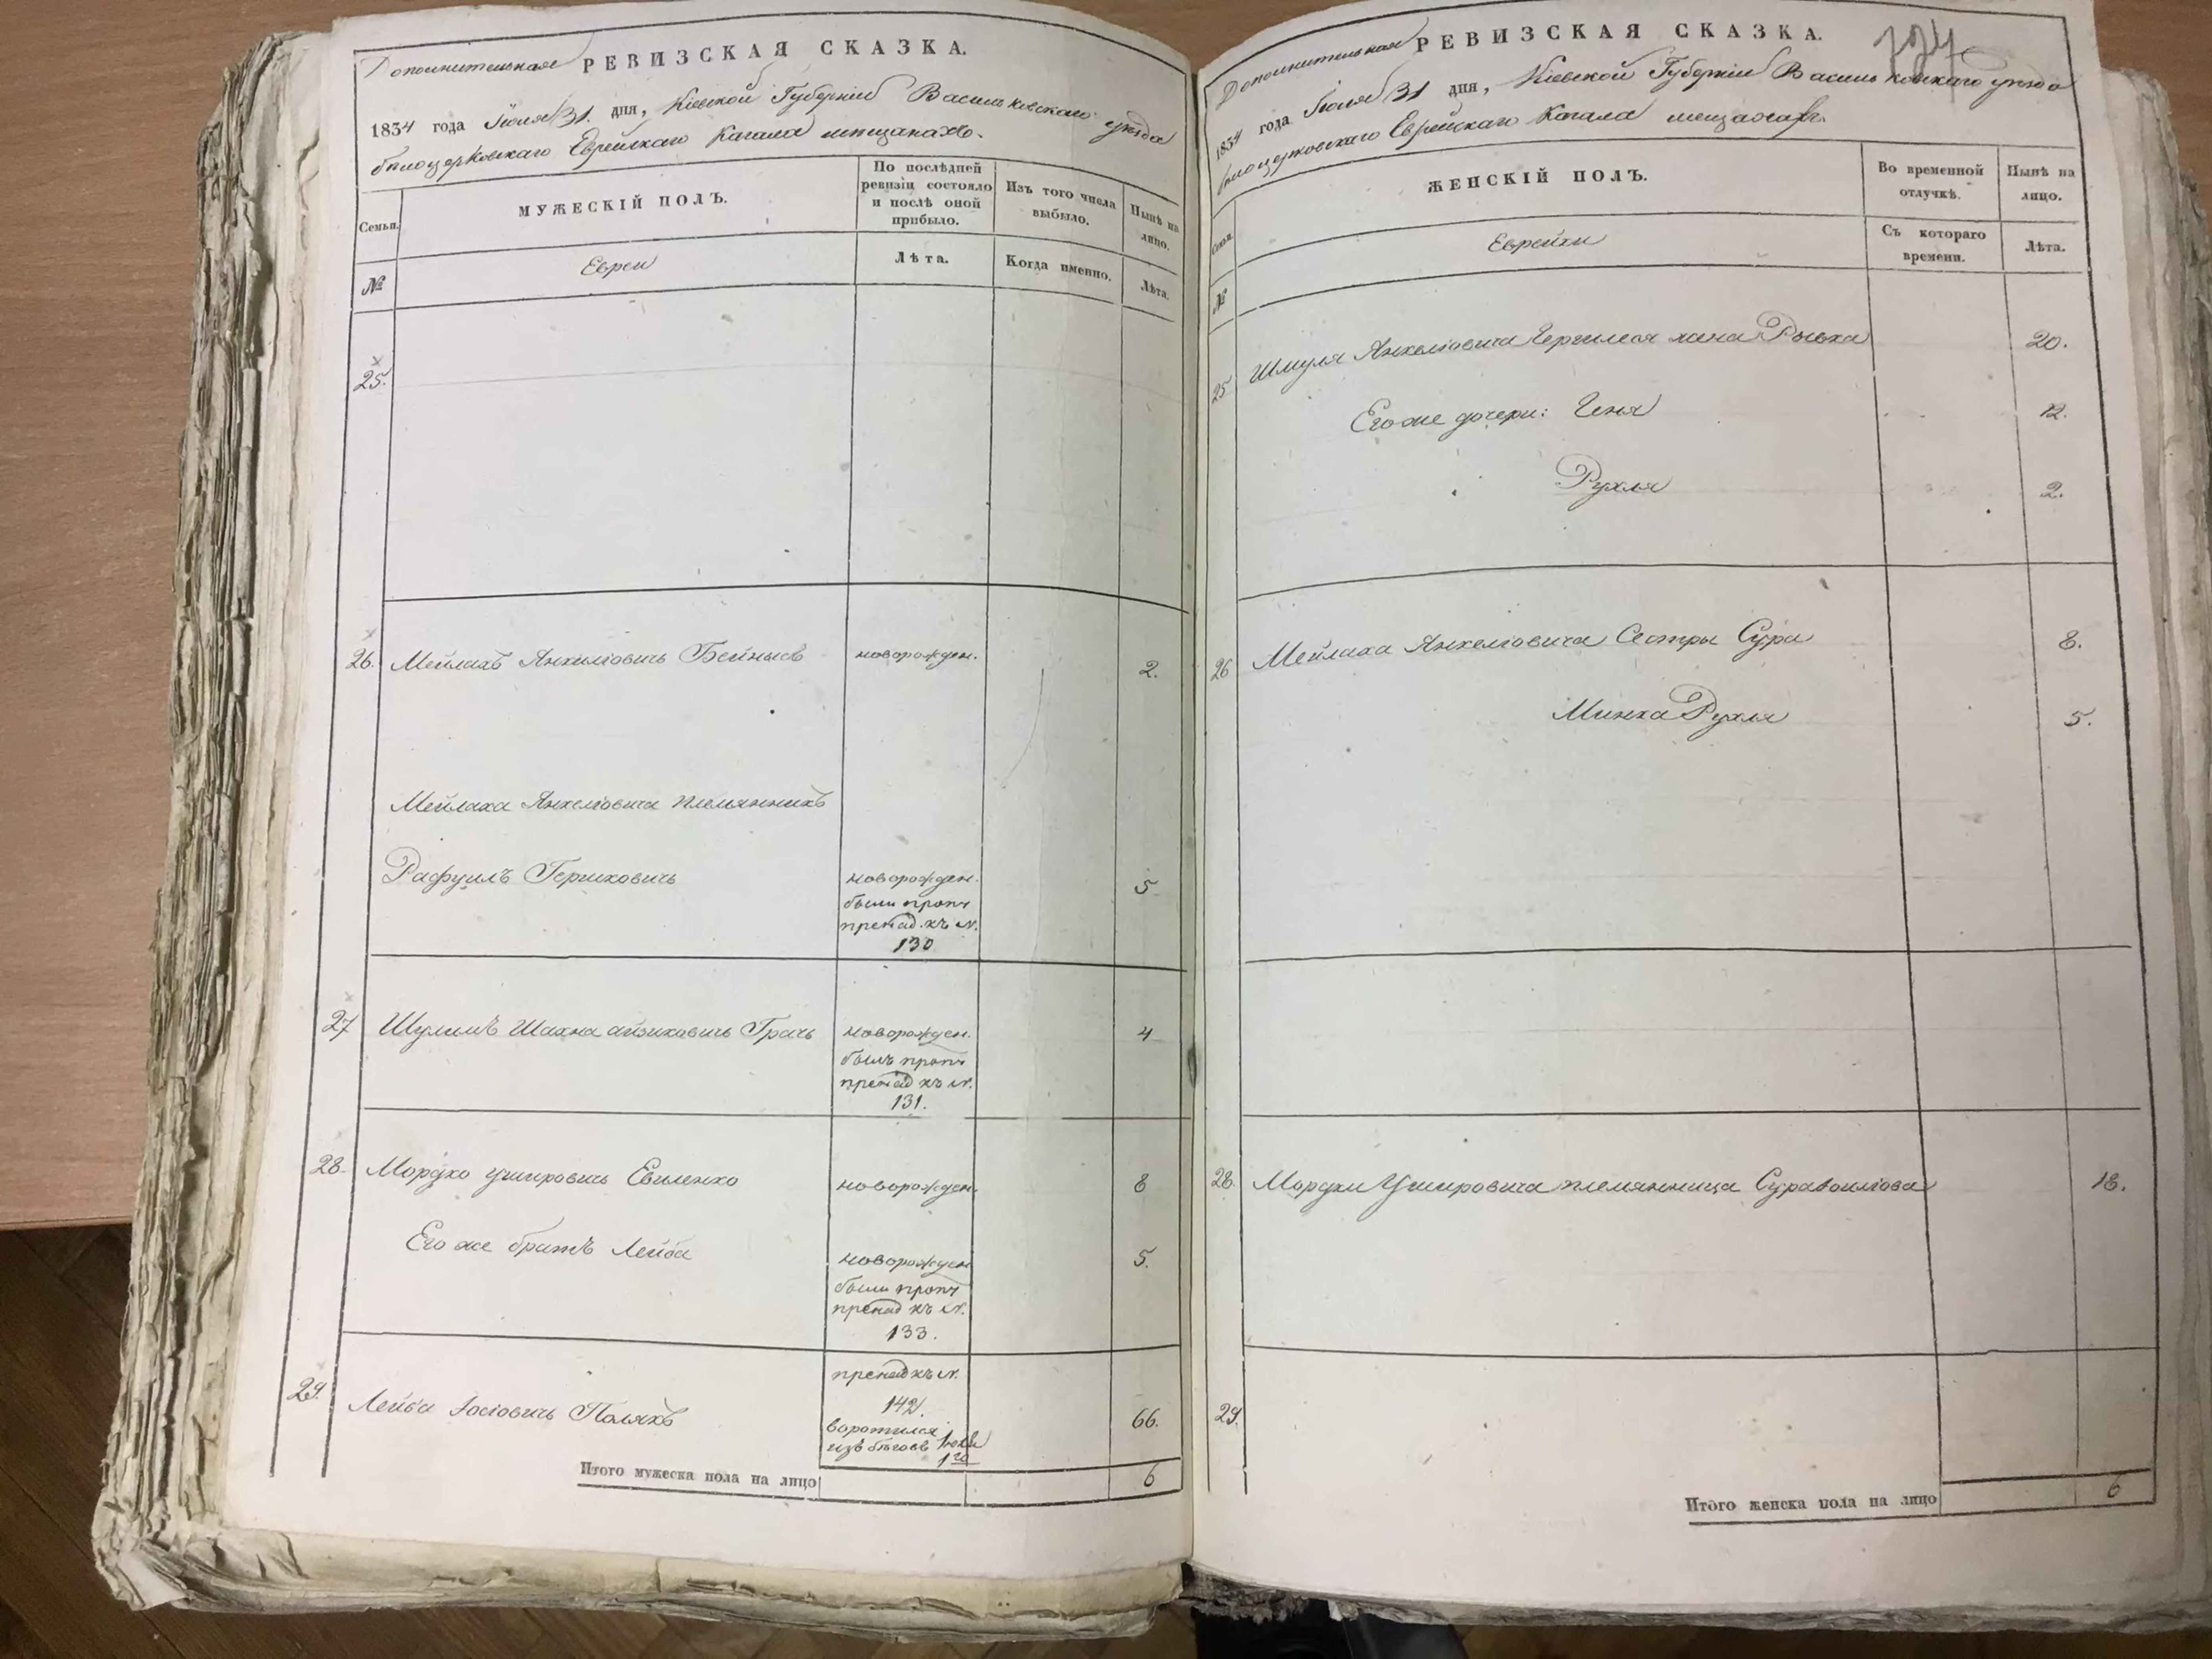 Дополнительная РЕВИЗСКАЯ СКАЗКА.
1834 года Іюля 31. дня, Кіевской Губерніи Васильковскаго уезда
белоцерковскаго Еврейскаго Кагала мещанахъ.
Семьи.
МУЖЕСКІЙ ПОЛЪ.
По послѣдней ревизіи состояло и послѣ оной прибыло.
Изъ того числа выбыло.
Нынѣ на лицо.
№
Евреи
Лѣта.
Когда именно.
Лѣта.
25.
26. Мейлахъ Янкелiовичь Бейнысъ новорожден. 2.
Мейлаха Янкелiовича племянникъ
Рафуилъ Гершковичь новорожден. 5
были проп
пренад. къ N.
130
27 Шулимъ Шахна айзиковичь Грачь новорожден. 4
былъ проп
пренад къ N.
131.
28. Мордко ушировичь Евиленко новорожден. 8
Его же братъ Лейба новорожден 5.
были проп
пренад къ N.
133.
пренад къ N.
142.
29. Лейба Іосiовичь Полякъ 66.
воротился
изъ бѣговъ Іюля
1го
Итого мужеска пола на лицо 6
Дополнительная РЕВИЗСКАЯ СКАЗКА.
1834 года Іюля 31 дня, Кіевской Губерніи Васильковскаго уезда
белоцерковскаго Еврейскаго Кагала мещанахъ.
ЖЕНСКІЙ ПОЛЪ.
Во временной отлучкѣ.
Нынѣ на лицо.
№
Еврейки
Съ котораго времени.
Лѣта.
25 Шмуля Янкелiовича жена Рывка 20.
Его же дочери: Геня 12.
Рухля 2.
26 Мейлаха Янкелiовича Сестры Сура 8.
Минка Рухля 5.
28. Мордки Ушировича племянница Сура 18.
29.
Итого женска пола на лицо 6